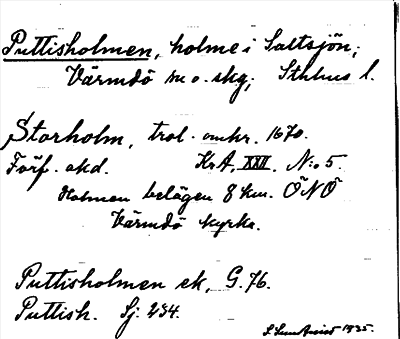 Puttisholmen, holme i Saltsjön,
Värmdö sn o. skg, Sthlms l.
Storholm, trol. omkr. 1670.
Förf. okd. KrA, XXII. N:o 5.
Holmen belägen 8 km. ÖNÖ
Värmdö kyrka.
Puttisholmen ek, G. 76.
Puttish. Sj. 234.
1935.